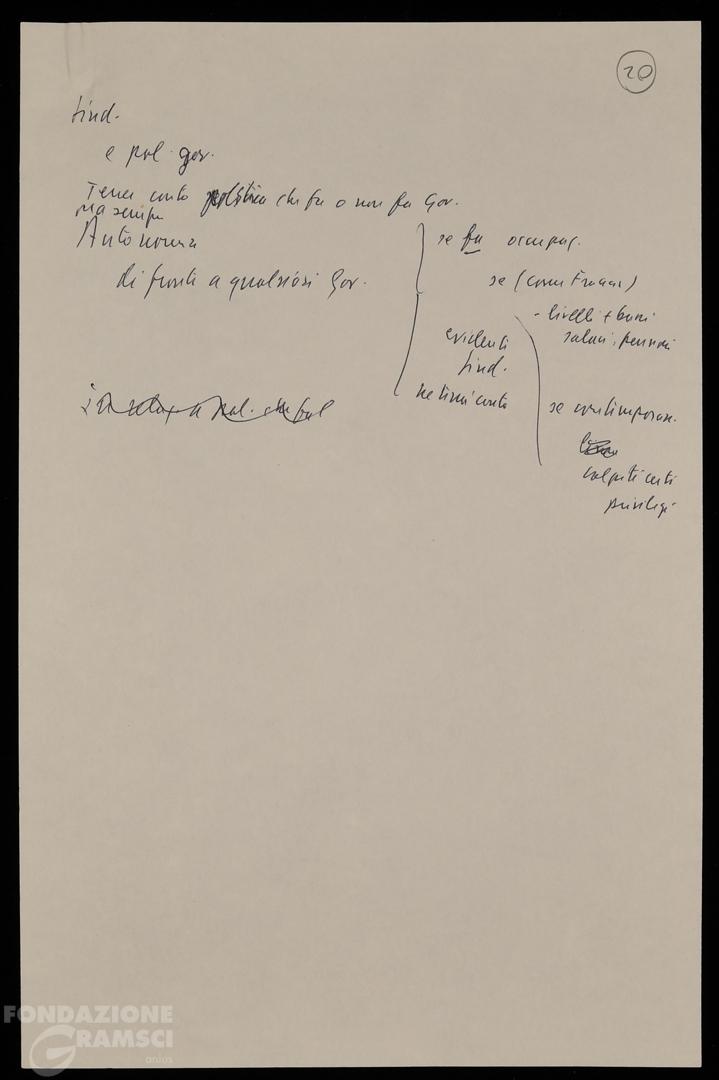 20
sind.
e pol. gov.
Tener conto politica che fa o non fa Gov.
ma sempre
Autonomia
di fronte a qualsiasi Gov.
se fa occupaz.
se (come Francia)
- livelli + bassi
salari, pensioni
evidente
sind.
ne terrà conto
se contemporan.
colpiti certi
privilegi
in relaz. a pol. che fa
FONDAZIONE
GRAMSCI
onlus